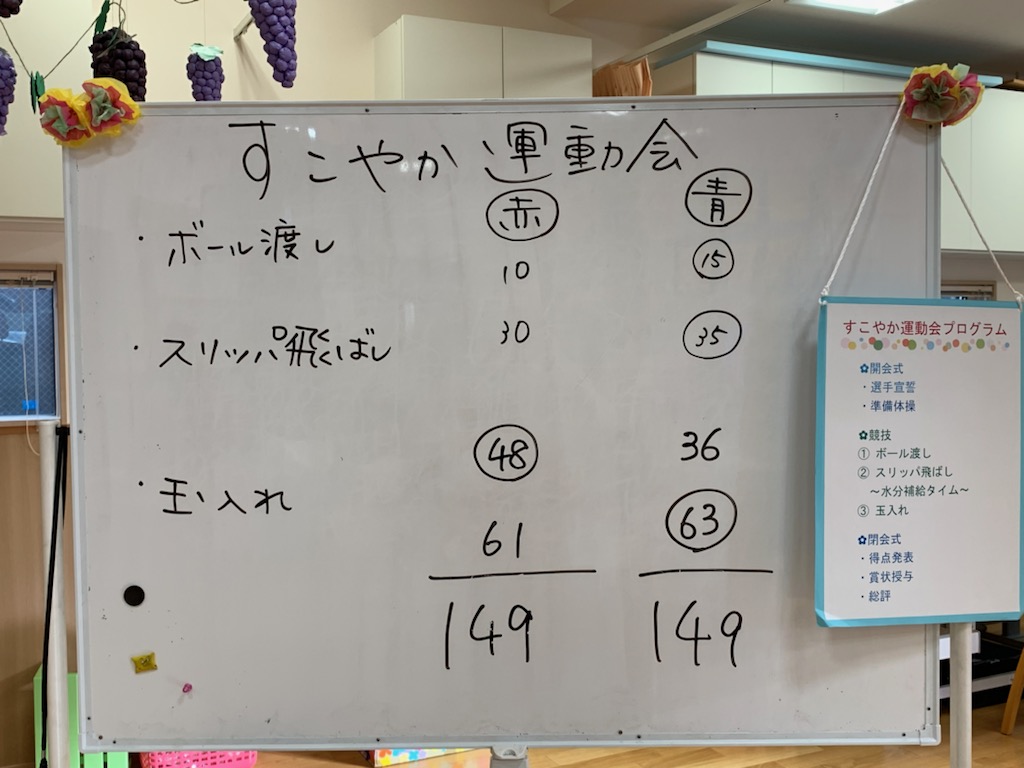 すこやか運動会
赤 青
・ボール渡し 10 15
・スリッパ飛ばし 30 35
48 36
・玉入れ
61 63
149 149
すこやか運動会プログラム
✿開会式
・選手宣誓
・準備体操
✿競技
① ボール渡し
② スリッパ飛ばし
～水分補給タイム～
③ 玉入れ
✿閉会式
・得点発表
・賞状授与
・総評